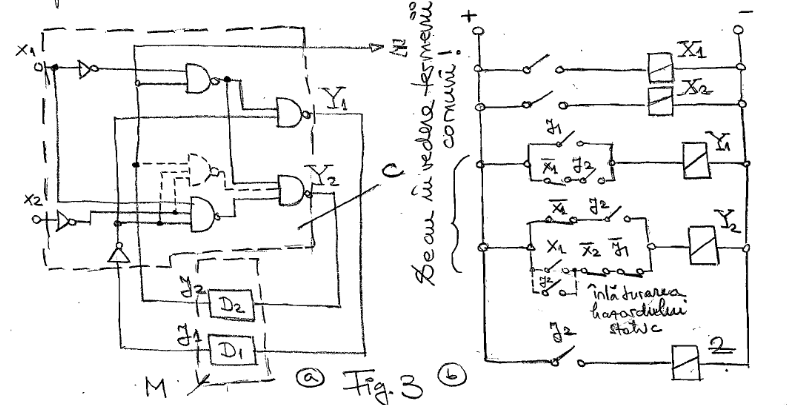 x1
x2
Y1
Y2
C
y2
D2
y1
D1
M
a
Fig. 3
b
Se au în vedere termenii
comuni!
+
-
X1
X2
y1
x̄1 y2
Y1
x̄1 y2
Y2
x1 x̄2 ȳ1
y2
înlăturarea
hazardului
static
y2
Z